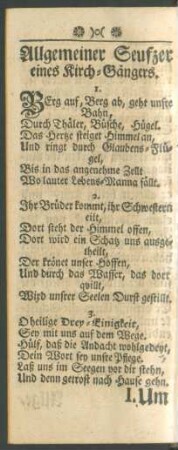 Allgemeiner Seufzer
eines Kirch-Gängers.
1.
BErg auf, Berg ab, geht unsre
Bahn,
Durch Thäler, Büsche, Hügel.
Das Hertze steiget Himmel an,
Und ringt durch Glaubens-Flü-
gel,
Bis in das angenehme Zelt
Wo lauter Lebens-Manna fällt.
2.
Ihr Brüder kommt, ihr Schwestern
eilt,
Dort steht der Himmel offen,
Dort wird ein Schatz uns ausge-
theilt,
Der krönet unser Hoffen,
Und durch das Wasser, das dort
qvillt,
Wird unsrer Seelen Durst gestillt.
3.
O heilige Drey-Einigkeit,
Sey mit uns auf dem Wege.
Hülf, daß die Andacht wohlgedeyt,
Dein Wort sey unsre Pflege.
Laß uns im Seegen vor dir stehn,
Und denn getrost nach Hause gehn.
I. Um